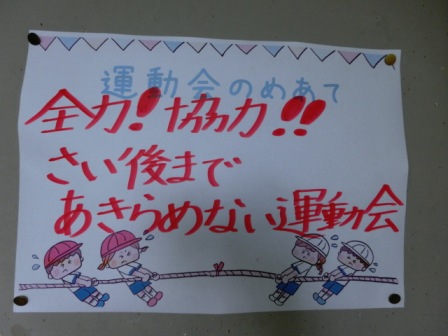 運動会のめあて
全力!協力!!
さい後まで
あきらめない運動会